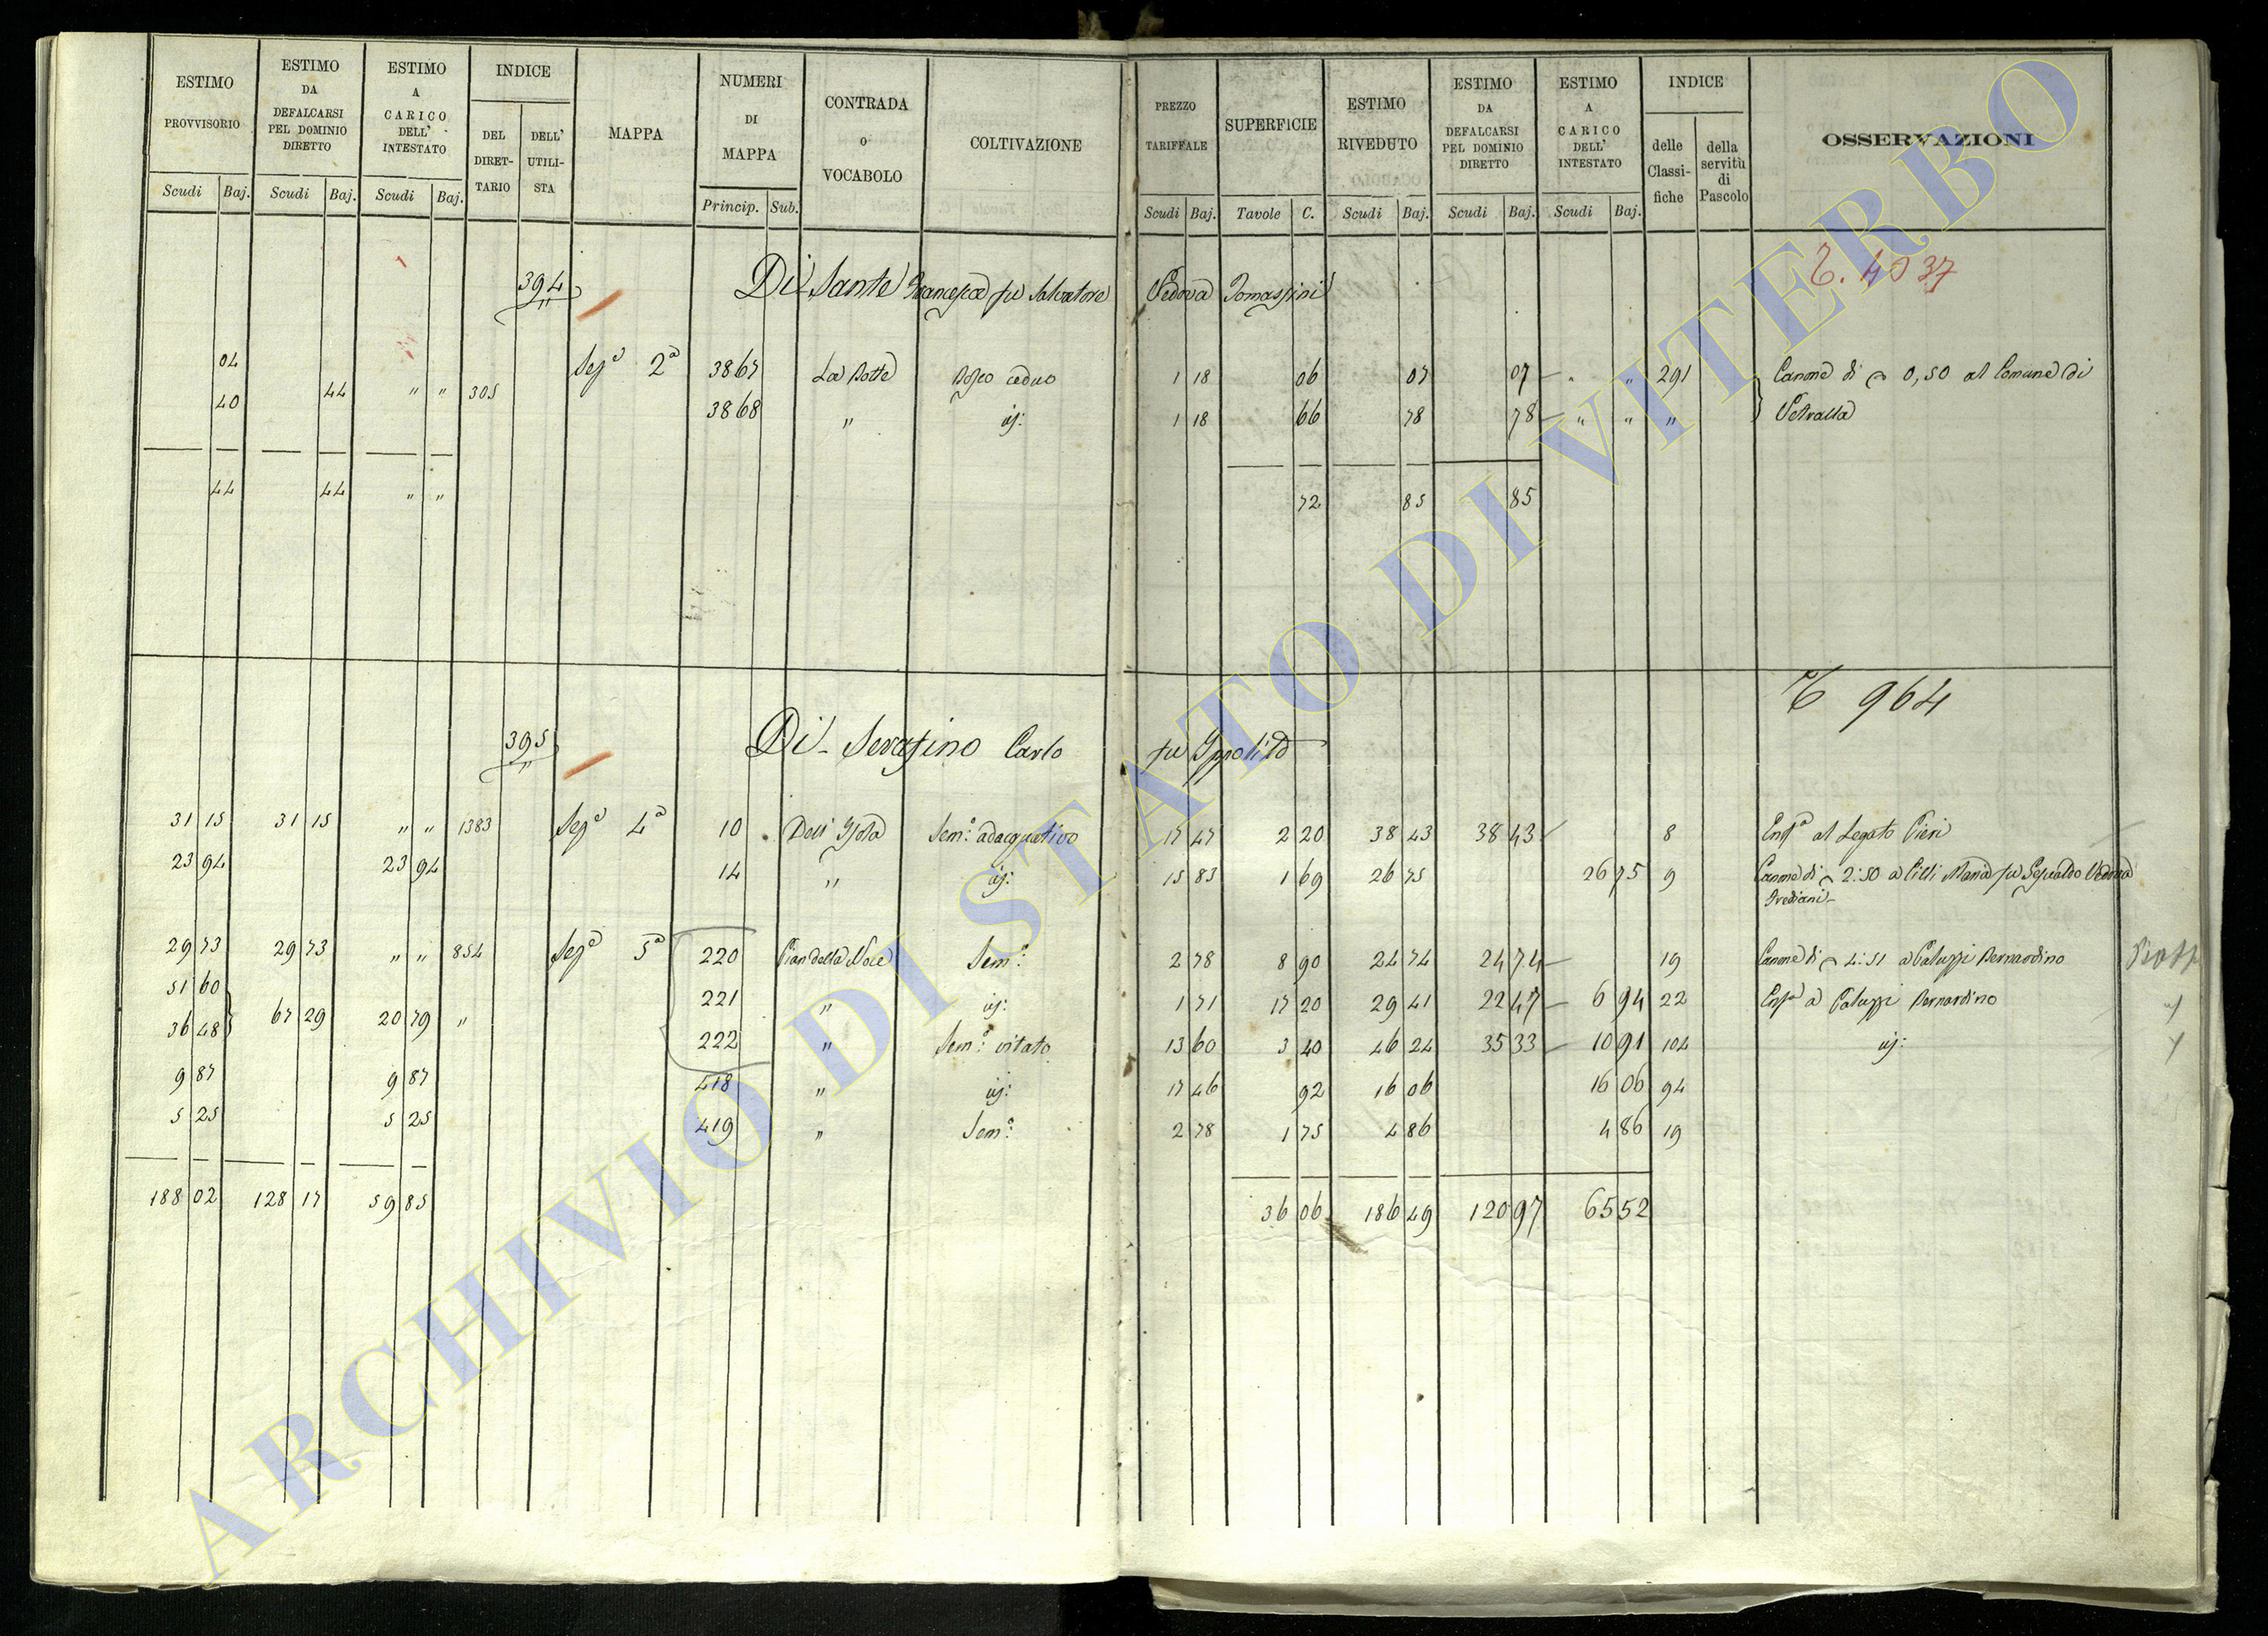 ESTIMO PROVVISORIO | ESTIMO DA DEFALCARSI PEL DOMINIO DIRETTO | ESTIMO A CARICO DELL' INTESTATO | INDICE | MAPPA | NUMERI DI MAPPA | CONTRADA O VOCABOLO | COLTIVAZIONE | PREZZO TARIFFALE | SUPERFICIE | ESTIMO RIVEDUTO | ESTIMO DA DEFALCARSI PEL DOMINIO DIRETTO | ESTIMO A CARICO DELL' INTESTATO | INDICE | OSSERVAZIONI
DEL DIRETTARIO | DELL' UTILISTA | delle Classifiche | della servitù di Pascolo
Scudi | Baj. | Scudi | Baj. | Scudi | Baj. | Princip. | Sub. | Scudi | Baj. | Tavole | C. | Scudi | Baj. | Scudi | Baj. | Scudi | Baj.
394 Di Sante Francesca fu Salvatore Vedova Tomassini 4037
04 Sez.e 2a 3867 La Botte Bosco ceduo 1 18 06 07 07 " " 291 Canone di 0,50 al Comune di
40 44 " " 305 3868 " id: 1 18 66 78 78 " " " Vetralla
44 44 " " 72 85 85
964
395 Di Serafino Carlo fu Ippolito
31 15 31 15 " " 1383 Sez.e 4a 10 Dell' Isola Sem.o adacquativo 17 47 2 20 38 43 38 43 8 Enf.a al Legato Pieri
23 94 23 94 14 " id: 15 83 1 69 26 75 26 75 9 Canone di 2:50 a Cilli Maria fu Gesualdo Vedova
Frediani
29 73 29 73 " " 854 Sez.e 5a 220 Pian della Noce Sem.o 2 78 8 90 24 74 24 74 19 Canone di 4:51 a Paluzzi Bernardino
51 60 221 " id: 1 71 17 20 29 41 22 47 6 94 22 Enf.a a Paluzzi Bernardino
36 48 67 29 20 79 " 222 " Sem.o vitato 13 60 3 40 46 24 35 33 10 91 104 id:
9 87 9 87 418 " id: 17 46 92 16 06 16 06 94
5 25 5 25 419 " Sem.o 2 78 1 75 4 86 4 86 19
188 02 128 17 59 85 36 06 186 49 120 97 65 52
ARCHIVIO DI STATO DI VITERBO